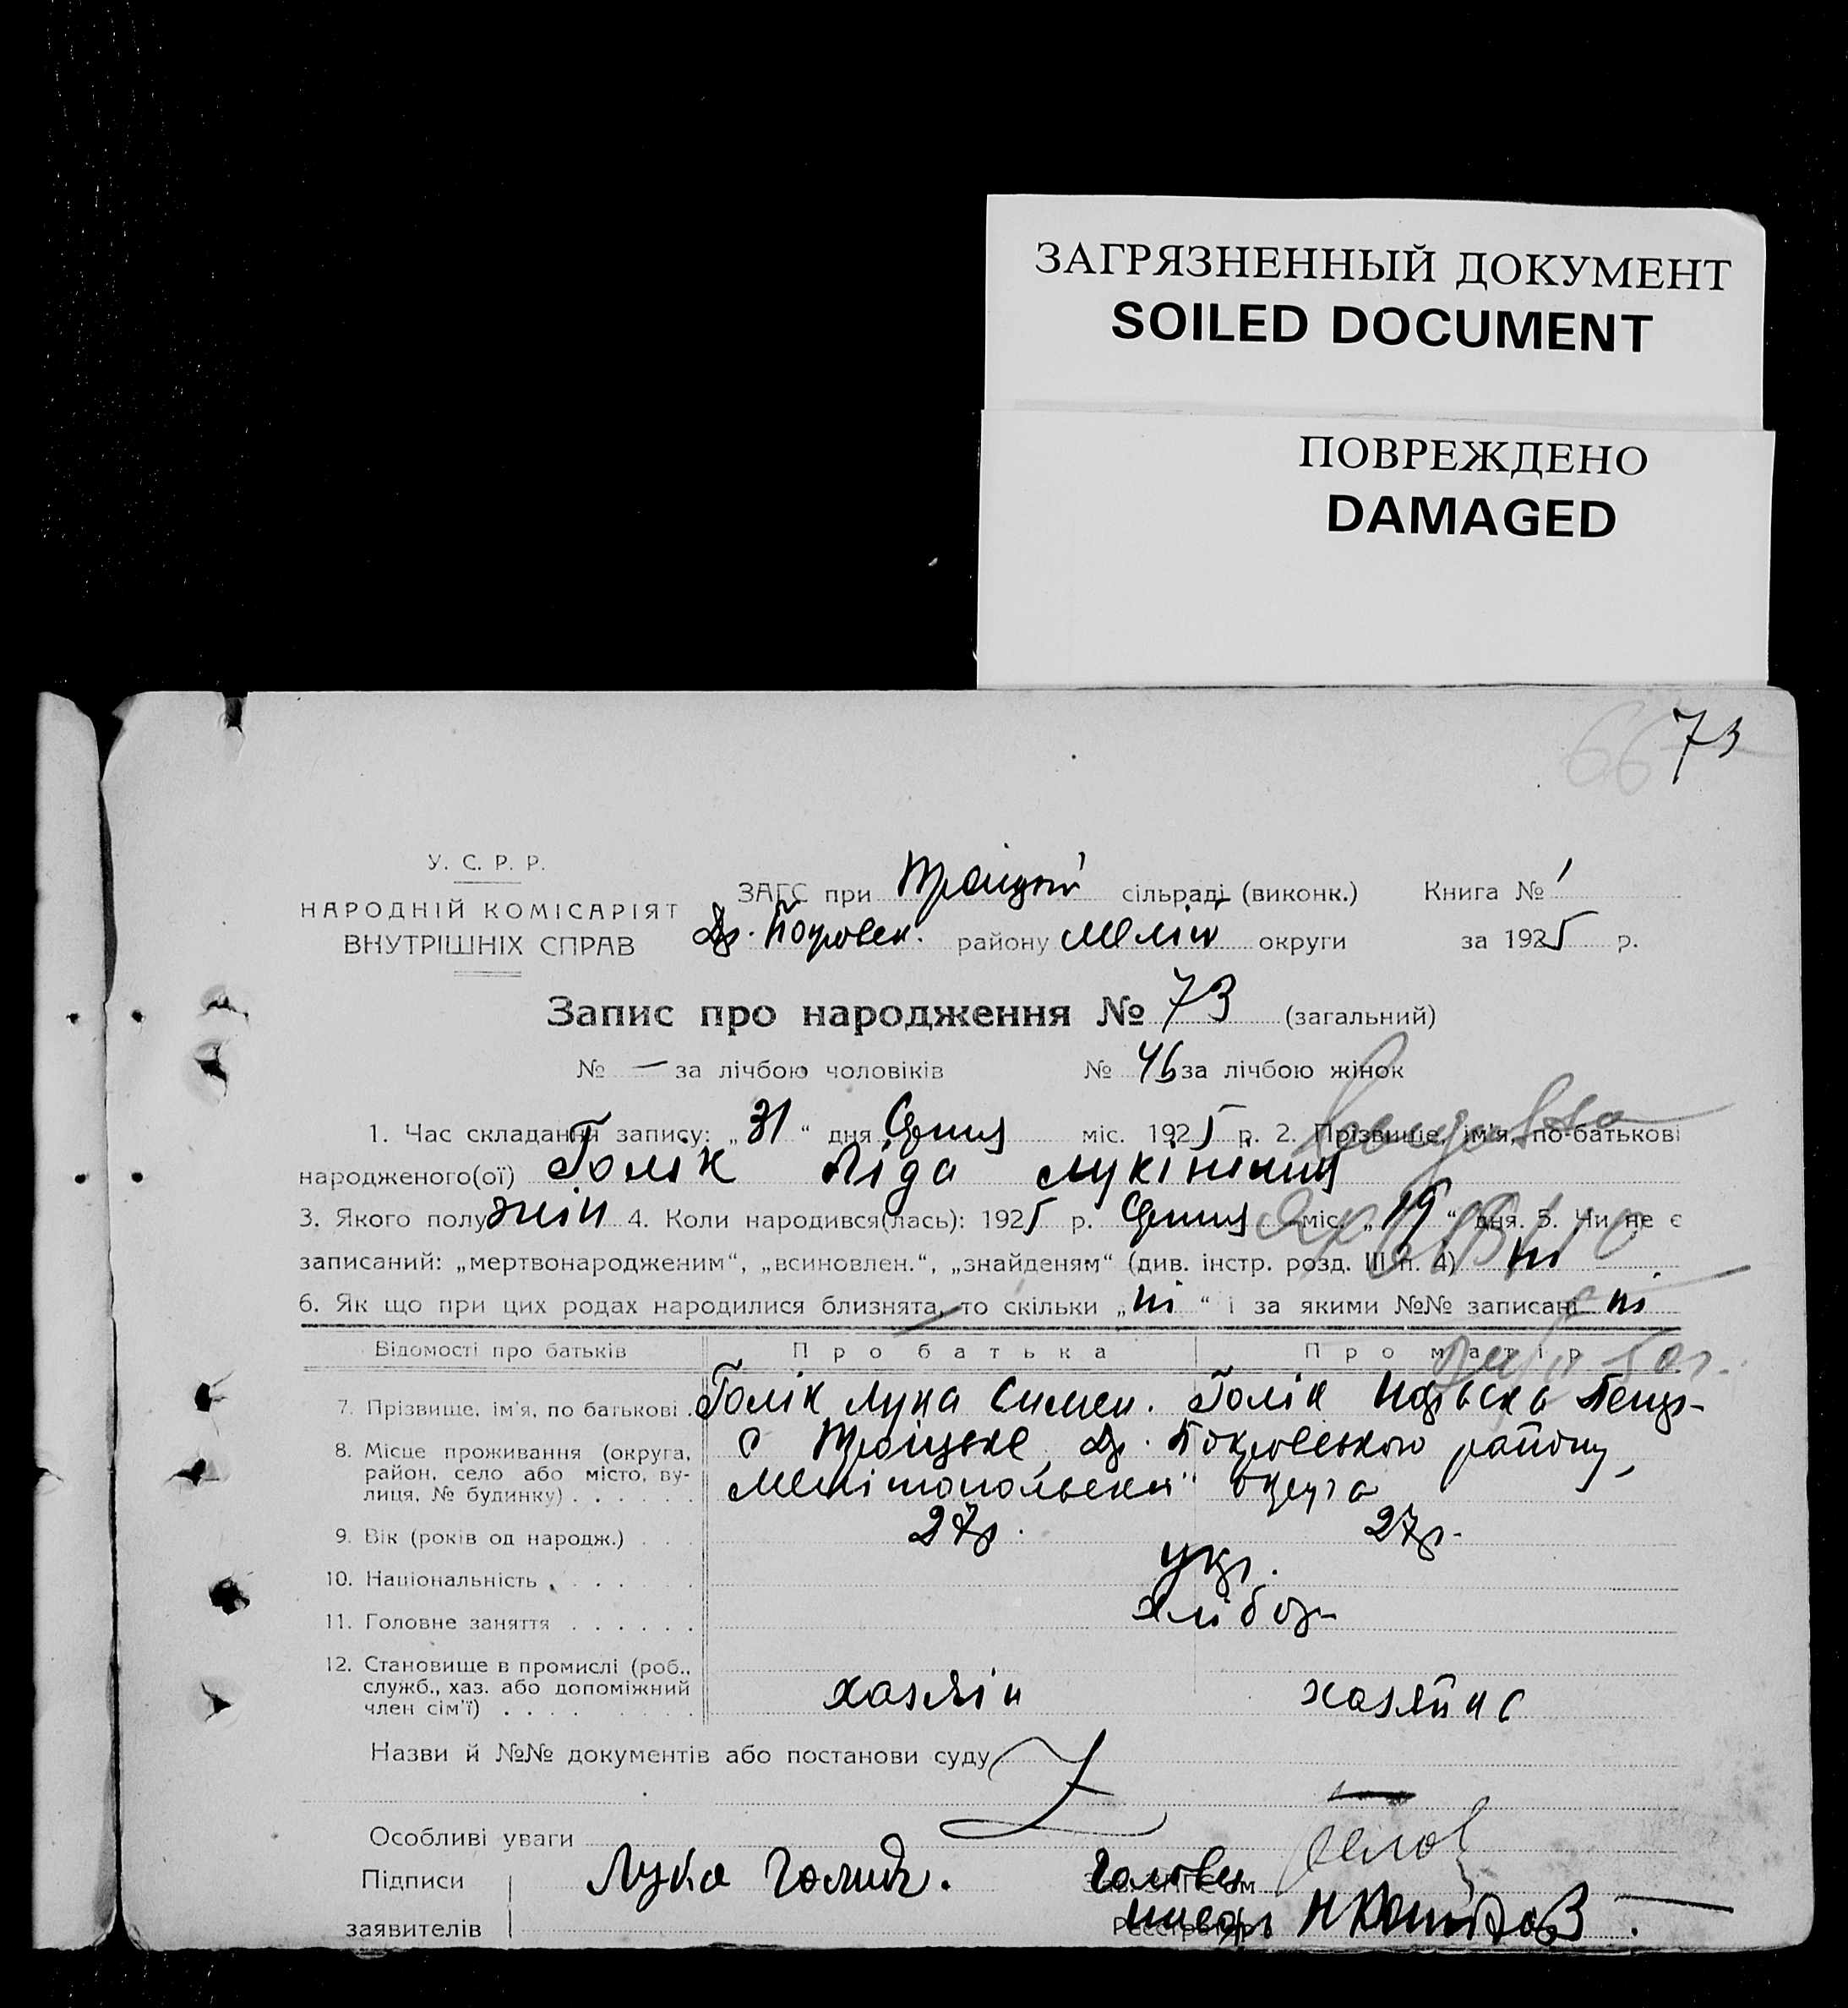 ЗАГРЯЗНЕННЫЙ ДОКУМЕНТ
SOILED DOCUMENT
ПОВРЕЖДЕНО
DAMAGED
66 73
У. С. Р. Р.
НАРОДНІЙ КОМІСАРІЯТ
ВНУТРІШНІХ СПРАВ
ЗАГС при Троіцькій сільраді (виконк.) Книга № 1
Др. Покровськ. району Меліт округи за 1925 р.
Запис про народження № 73 (загальний)
№ — за лічбою чоловіків № 46 за лічбою жінок
1. Час складання запису: „31“ дня Серпня міс. 1925 р. 2. Прізвище, ім'я, по-батькові
народженого(ої) Голік Ліда Лукінішня
3. Якого полу жін 4. Коли народився(лась): 1925 р. Серпня міс. „19“ дня. 5. Чи не є
записаний: „мертвонародженим“, „всиновлен.“, „знайденям“ (див. інстр. розд. III п. 4) ні
6. Як що при цих родах народилися близнята, то скільки „ні“ і за якими №№ записані ні
Відомості про батьків Про батька Про матір
7. Прізвище, ім'я, по батькові Голік Лука Симен. Голік
8. Місце проживання (округа, район, село або місто, вулиця, № будинку) с Троіцьке, Др. Покровського району,
Мелітопольськоі округа
9. Вік (років од народж.) 27р. 27р.
10. Національність укр.
11. Головне заняття хлібор
12. Становище в промислі (роб., служб., хаз. або допоміжний член сім'ї) хазяін хазяйка
Назви й №№ документів або постанови суду
Особливі уваги
Підписи Лука Голик. Голова
заявителів Реєстратор